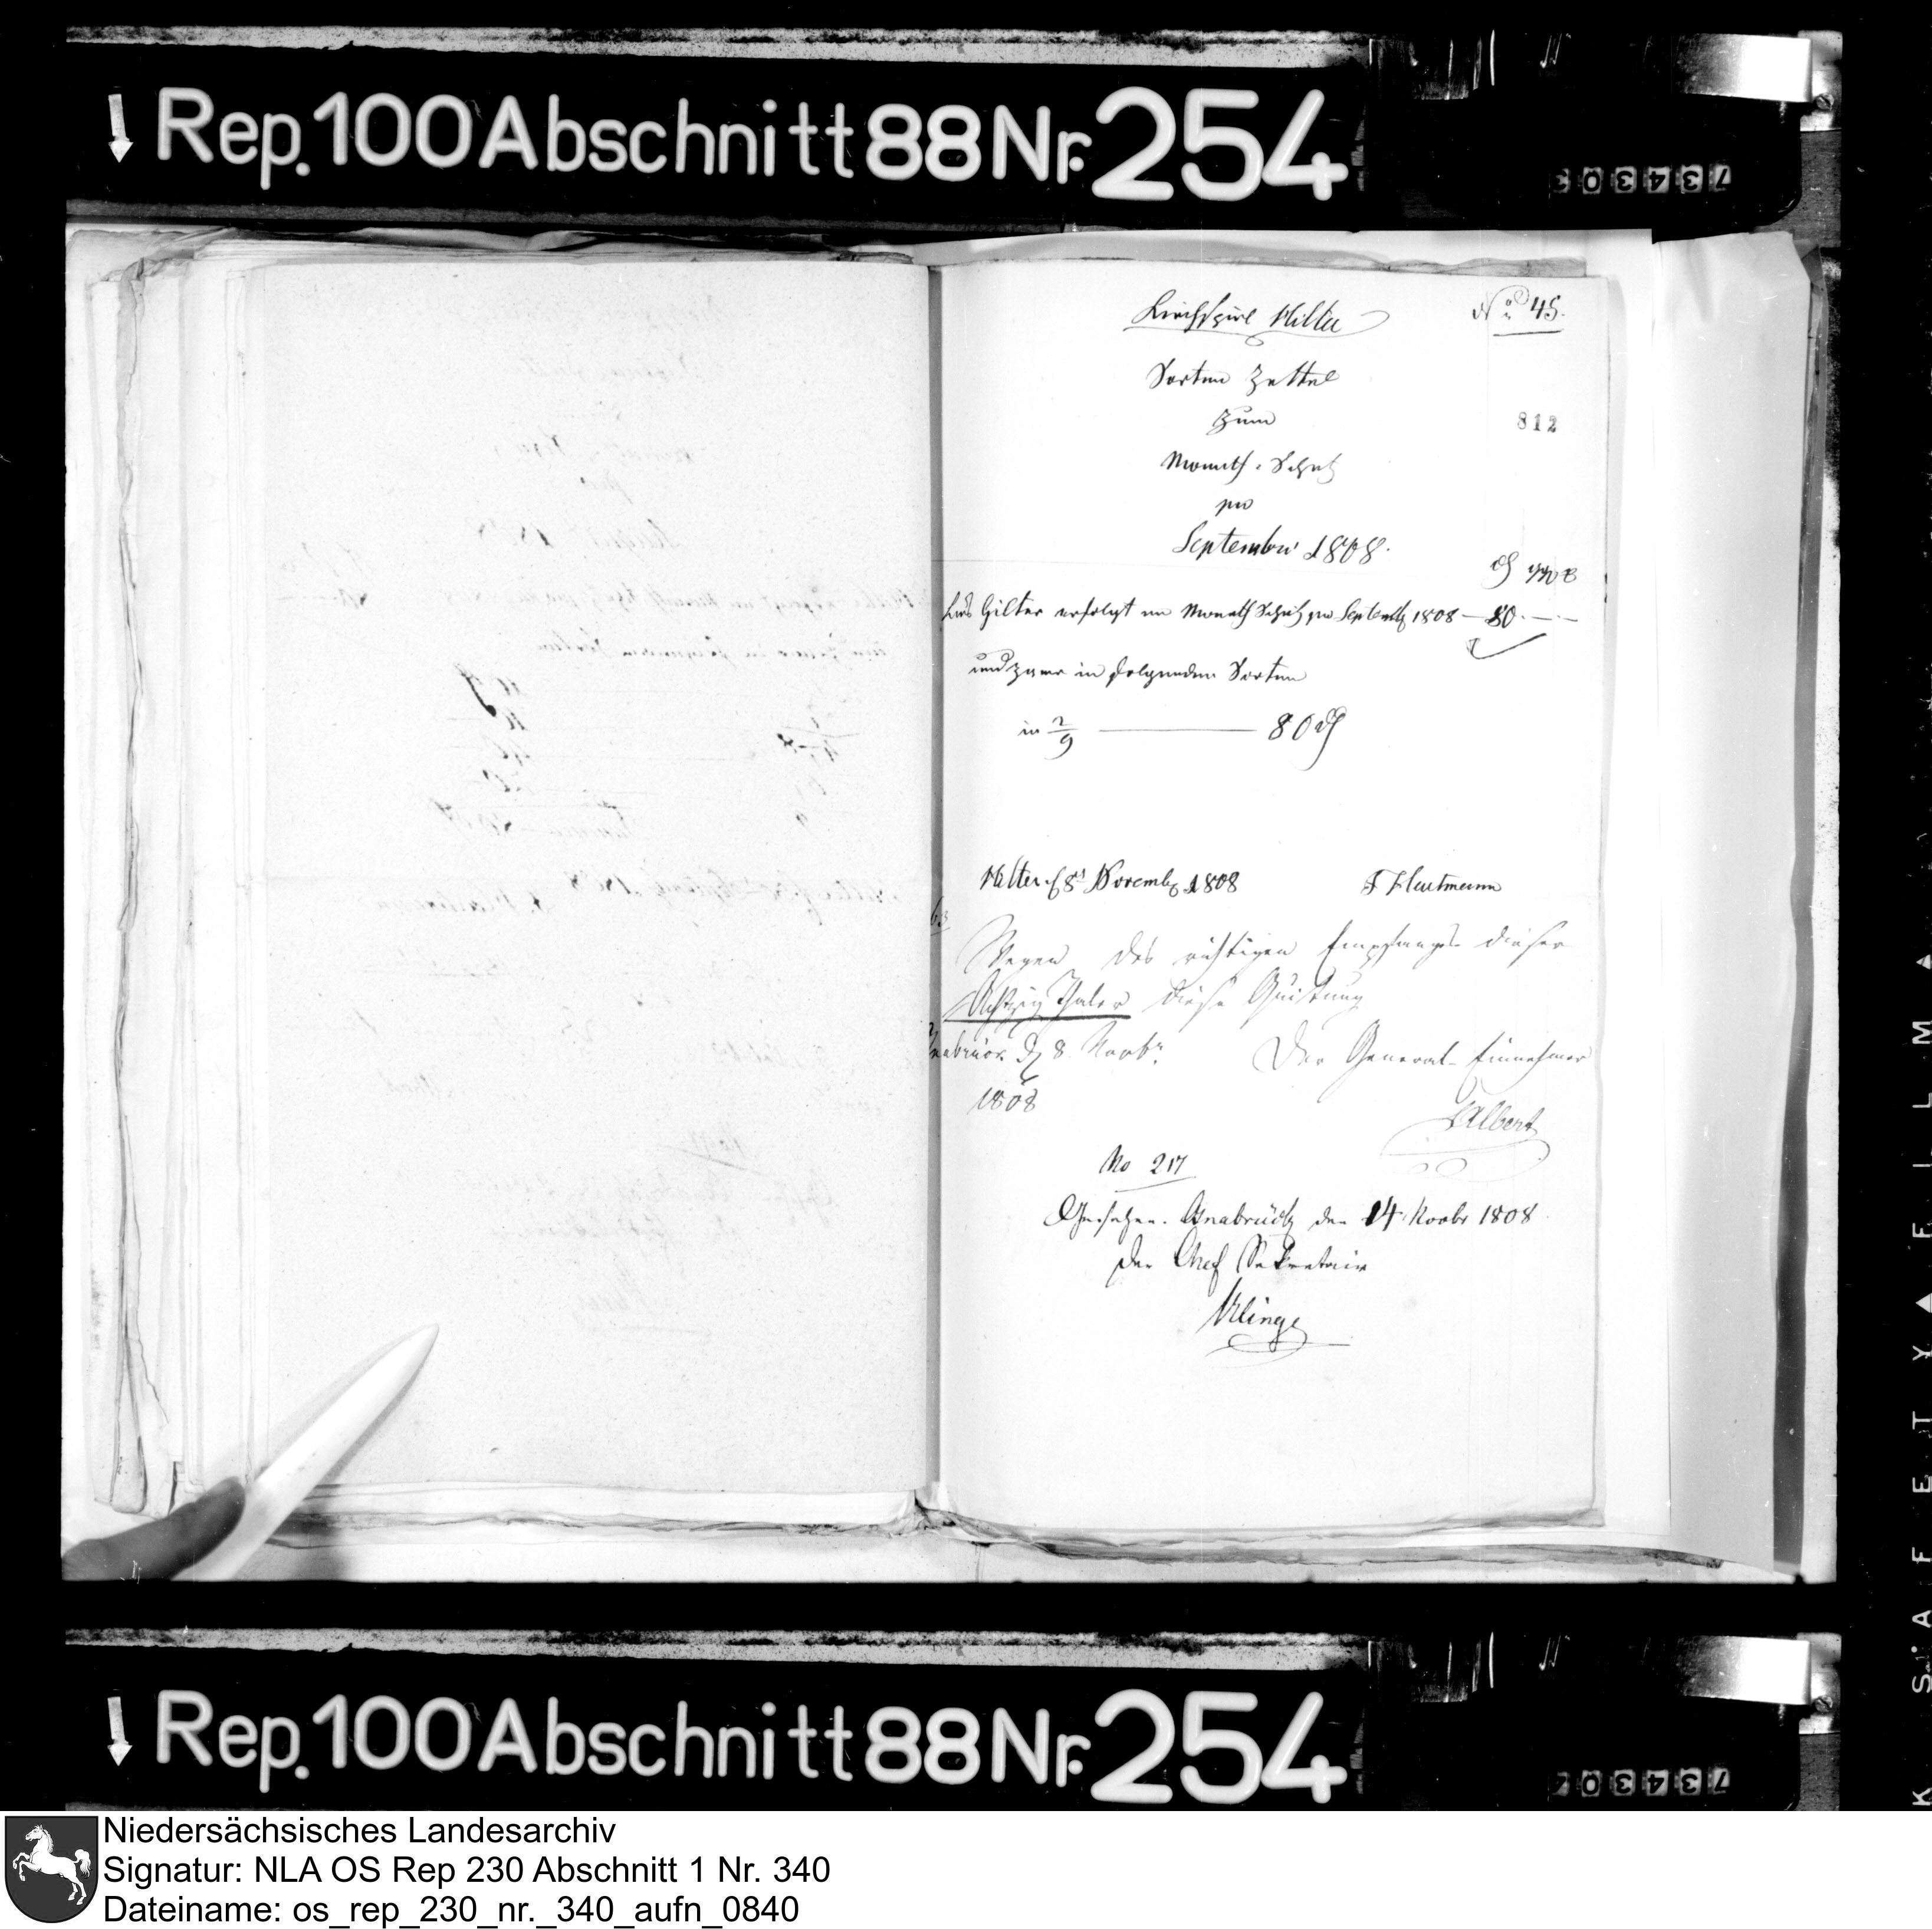 Rep. 100 Abschnitt 88 Nr. 254
Kirchspiel Hilter
No 45.
Sorten Zettel
zum
812
Monath-Schatz
pro
September 1808.
Hilter erfolgt an Monath Schatz pro Septembr 1808 — 80. — —
und zwar in folgenden Sorten
in 2/3 — 80 rt
Hilter d 8t Novembr 1808
Wegen des richtigen Empfanges dieser
Achtzig Thaler diese Quitung
Osnabrück d 8 Novbr
Der General-Einnehmer
1808
Albert
No 217
Gesehen. Osnabrück den 14 Novbr 1808
Der Chef Sekretair
Klinge
Rep. 100 Abschnitt 88 Nr. 254
Niedersächsisches Landesarchiv
Signatur: NLA OS Rep 230 Abschnitt 1 Nr. 340
Dateiname: os_rep_230_nr._340_aufn_0840